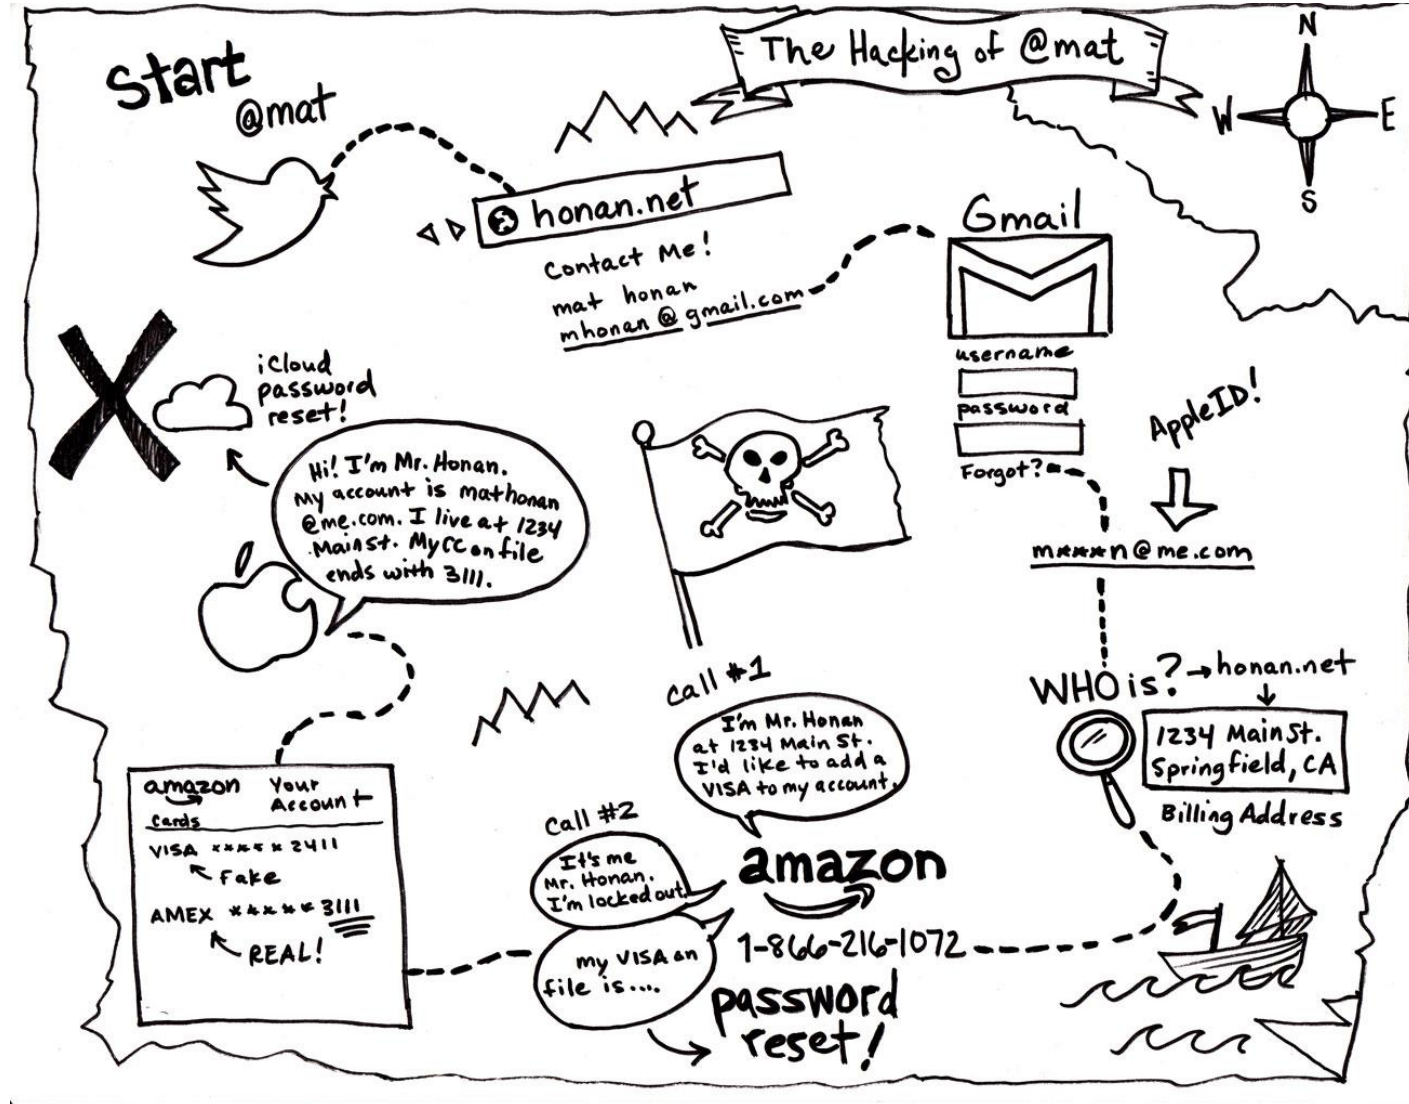 The Hacking of @mat
N
W
E
S
Start
@mat
honan.net
Contact Me!
mat honan
mhonan@gmail.com
Gmail
username
password
Forgot?
AppleID!
m****n@me.com
WHO is? → honan.net
1234 Main St.
Springfield, CA
Billing Address
call #1
I'm Mr. Honan
at 1234 Main St.
I'd like to add a
VISA to my account.
amazon
1-866-216-1072
call #2
It's me
Mr. Honan.
I'm locked out.
my VISA on
file is....
password
reset!
amazon
Your
Account
Cards
VISA ***** 2411
Fake
AMEX ***** 3111
REAL!
Hi! I'm Mr. Honan.
My account is mathonan
@me.com. I live at 1234
Main st. My CC on file
ends with 3111.
iCloud
password
reset!
X